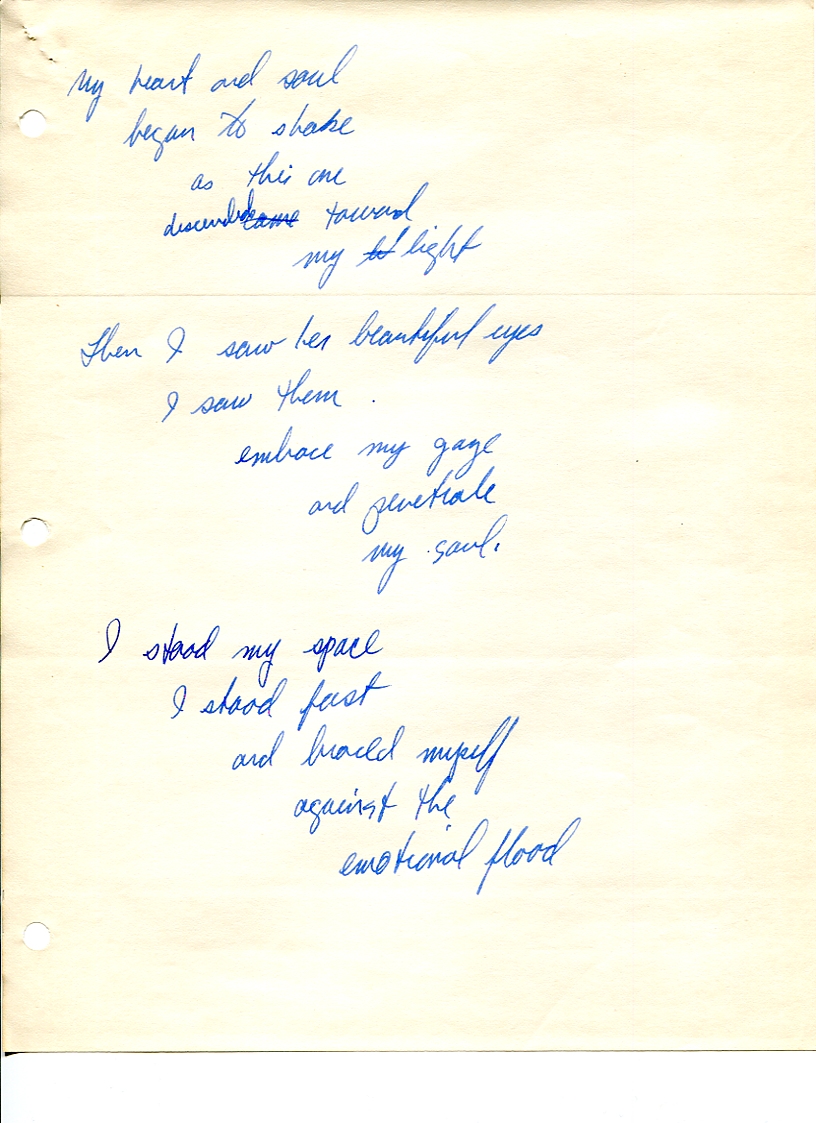 My heart and soul
began to shake
as this one
descended came toward
my lit light
Then I saw her beautiful eyes
I saw them
embrace my gaze
and penetrate
my soul.
I stood my space
I stood fast
and braced myself
against the
emotional flood